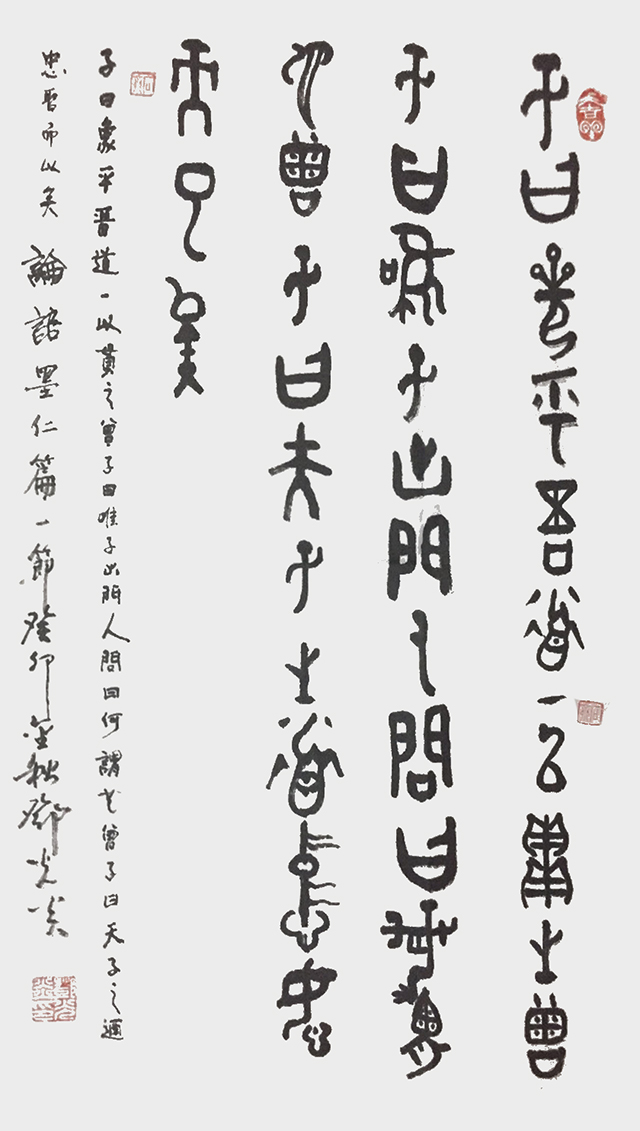 子曰參乎吾道一以貫之曾
子曰唯子出門人問曰何謂
也曾子曰夫子之道忠
而已矣
子曰參乎吾道一以貫之曾子曰唯子出門人問曰何謂也曾子曰夫子之道
忠恕而以矣 論語里仁篇一節癸卯金秋鄧光